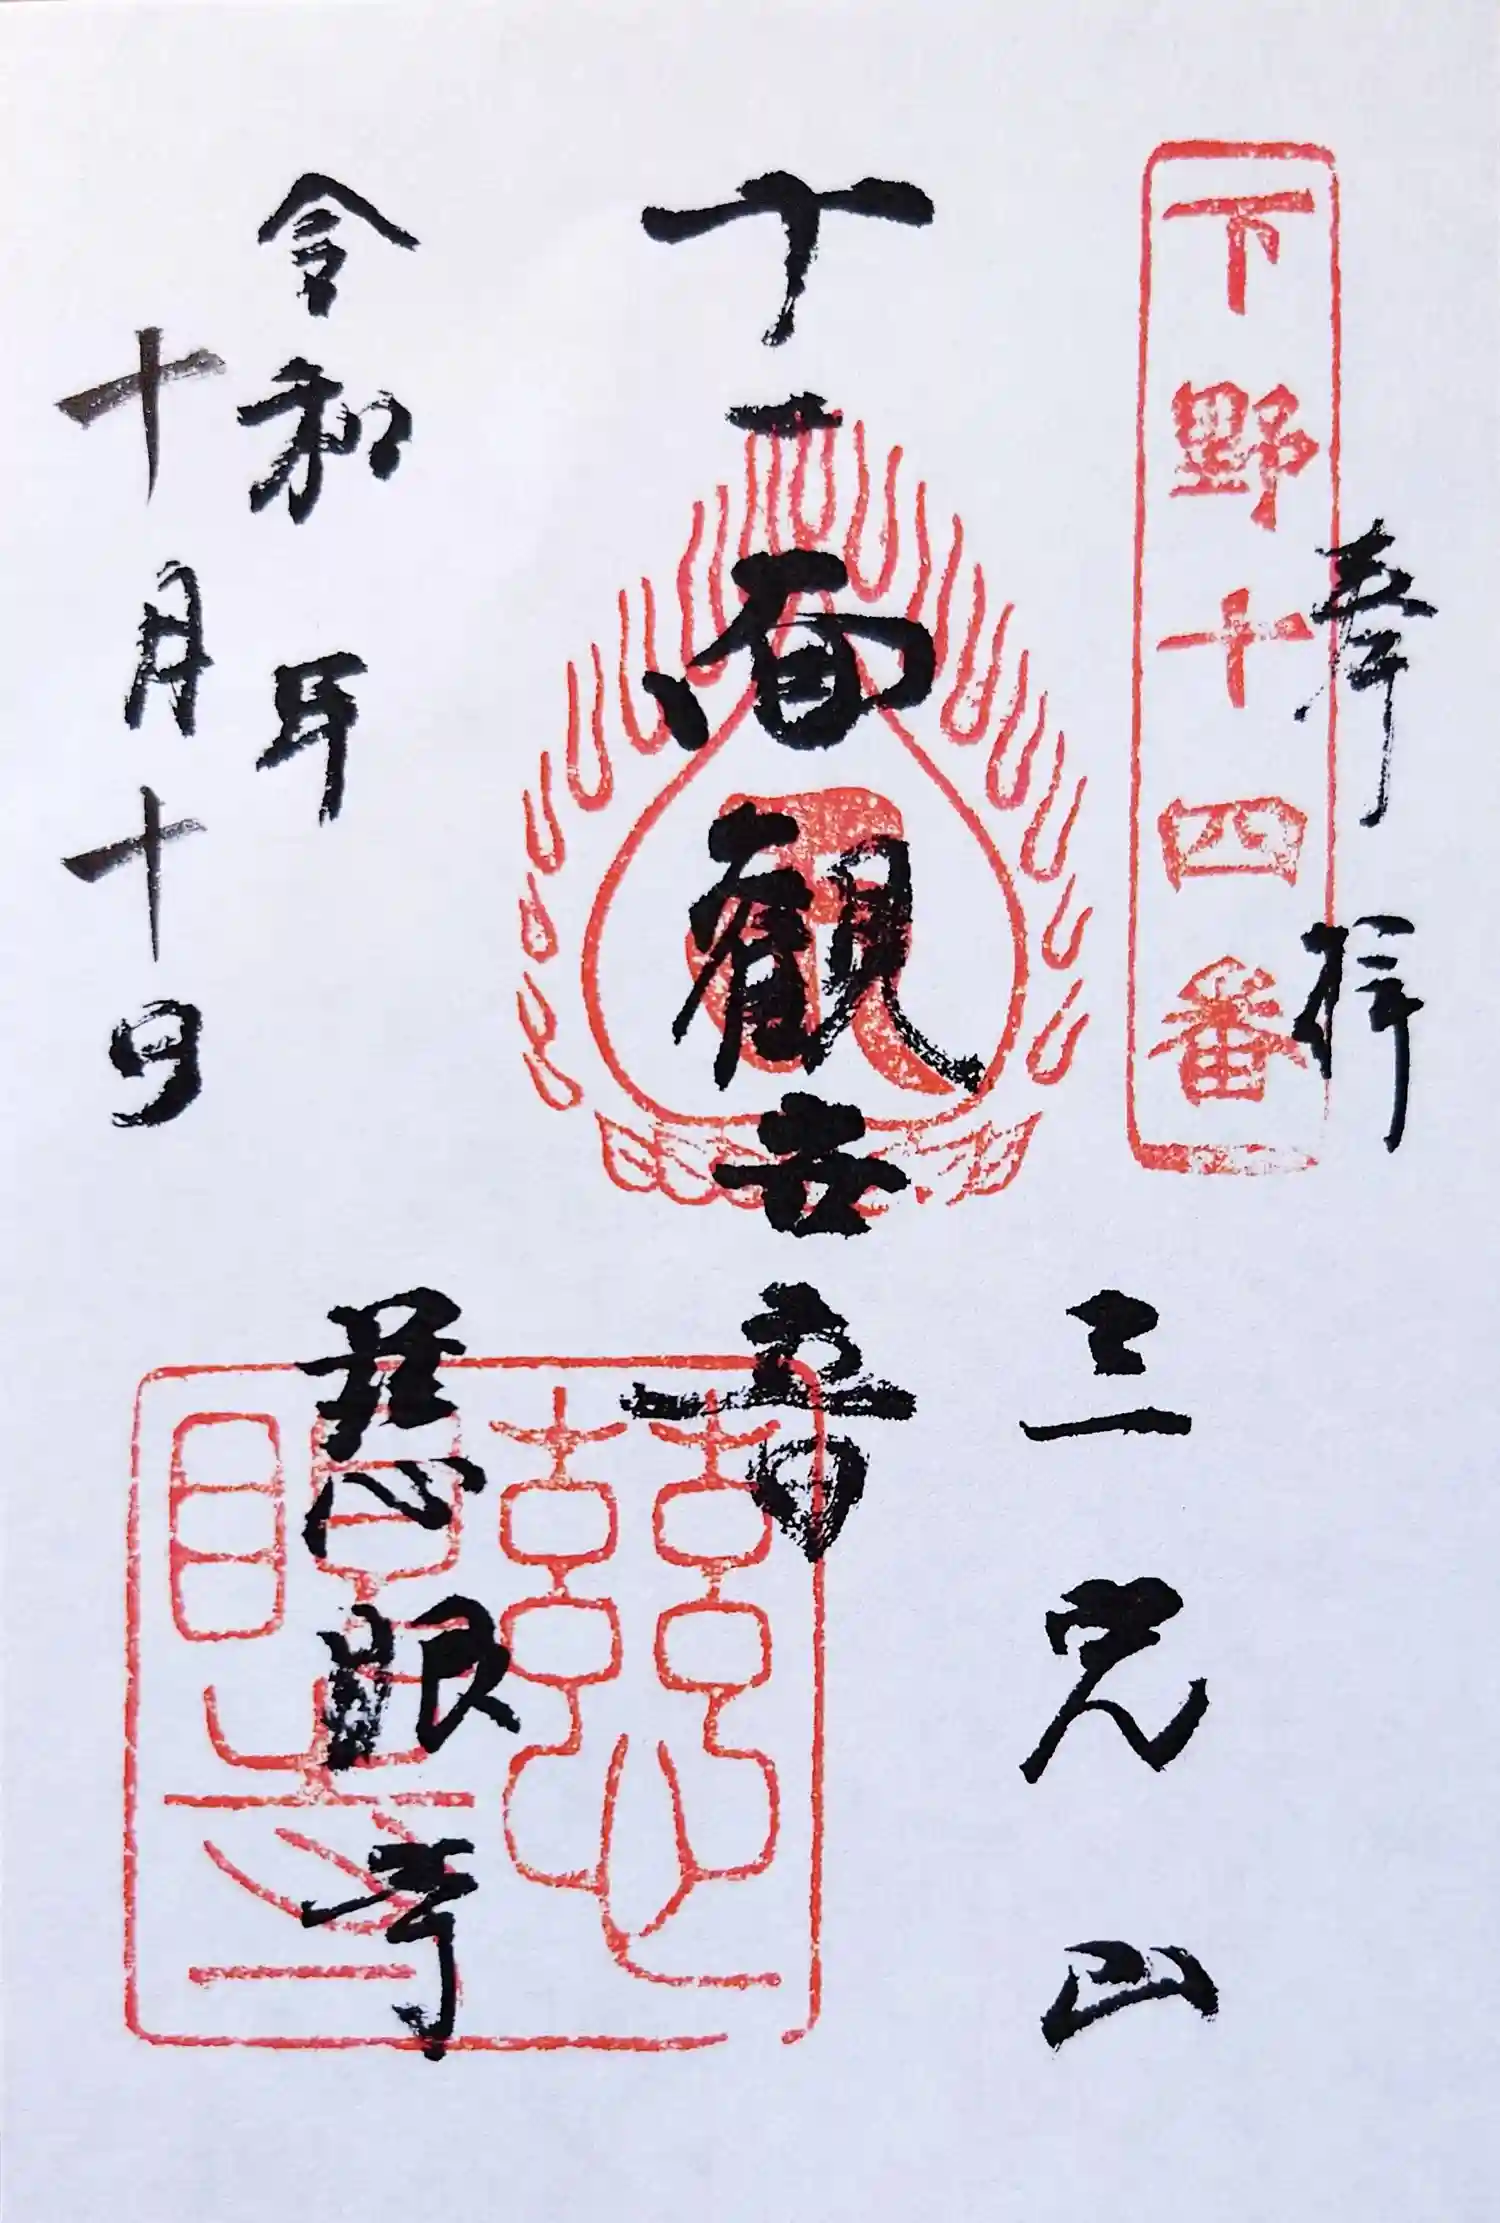 奉拝
下野十四番
三 山
十一面観世音
慈眼寺
令和 年
十月十日